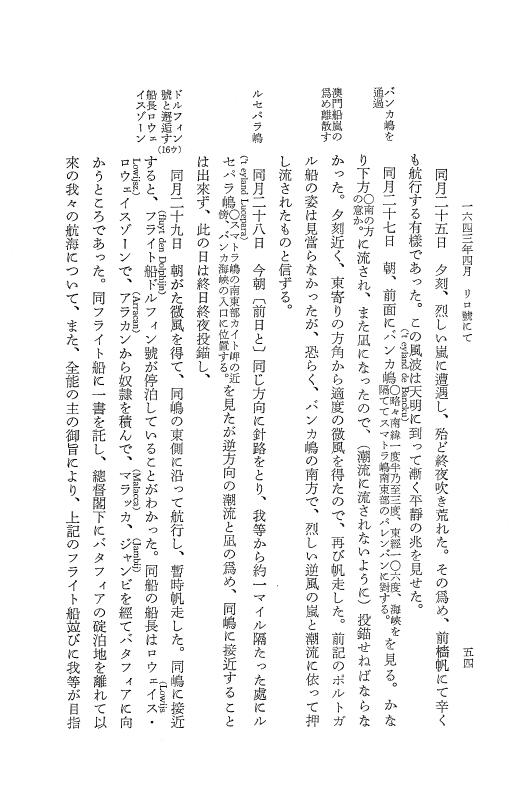 一六四三年四月　リロ號にて
五四
同月二十五日　夕刻、烈しい嵐に遭遇し、殆ど終夜吹き荒れた。その爲め、前檣帆にて辛く
も航行する有樣であった。この風波は天明に到って漸く平靜の兆を見せた。
バンカ嶋を
通過
同月二十七日　朝、前面にバンカ嶋('t eyland de Bancka)〇略々南緯一度半乃至三度、東經一〇六度、海峽を隔ててスマトラ嶋南東部のパレンバンに對する。を見る。かな
り下方〇南の方の意か。に流され、また凪になったので、(潮流に流されないように)投錨せねばならな
澳門船嵐の
爲め離散す
かった。夕刻近く、東寄りの方角から適度の微風を得たので、再び帆走した。前記のポルトガ
ル船の姿は見當らなかったが、恐らく、バンカ嶋の南方で、烈しい逆風の嵐と潮流に依って押
し流されたものと信ずる。
ルセパラ嶋
同月二十八日　今朝〔前日と〕同じ方向に針路をとり、我等から約一マイル隔たった處にル
セパラ嶋('t eyland Lucepara)〇スマトラ嶋の南東部カイト岬の近傍、バンカ海峽の入口に位置する。を見たが逆方向の潮流と凪の爲め、同嶋に接近すること
は出來ず、此の日は終日終夜投錨し、
ドルフィン
號と邂逅す
船長ロウェ
イスゾーン
(16ウ)
同月二十九日　朝がた微風を得て、同嶋の東側に沿って航行し、暫時帆走した。同嶋に接近
すると、フライト船ドルフィン號(fluyt den Dolphijn)が停泊していることがわかった。同船の船長はロウェイス・
ロウェイスゾーン(Lowijs Lowijsz.)で、アラカン(Arracan)から奴隷を積んで、マラッカ(Malacca)、ジャンビ(Jambij)を經てバタフィアに向
かうところであった。同フライト船に一書を託し、總督閣下にバタフィアの碇泊地を離れて以
來の我々の航海について、また、全能の主の御旨により、上記のフライト船竝びに我等が目指